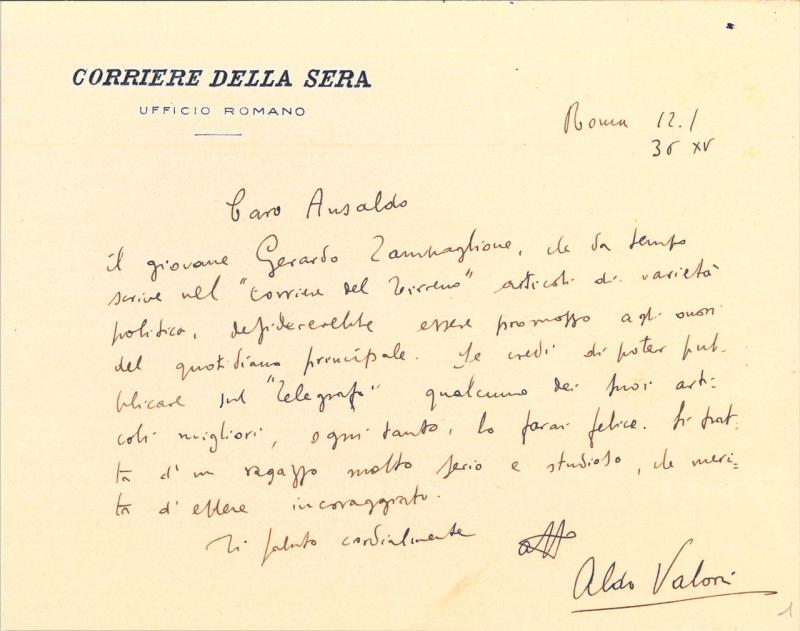 CORRIERE DELLA SERA
UFFICIO ROMANO
Roma 12.1
36 XV
Caro Ansaldo
il giovane Gerardo Zampaglione, che da tempo
scrive nel "Corriere del Tirreno" articoli di varietà
politica, desidererebbe essere promosso agli onori
del quotidiano principale. Se credi di poter pub-
blicare sul "Telegrafo" qualcuno dei suoi arti-
coli migliori, ogni tanto, lo farai felice. Si trat-
ta d'un ragazzo molto serio e studioso, che meri-
ta d'essere incoraggiato.
Ti saluto cordialmente
aff
Aldo Valori
1